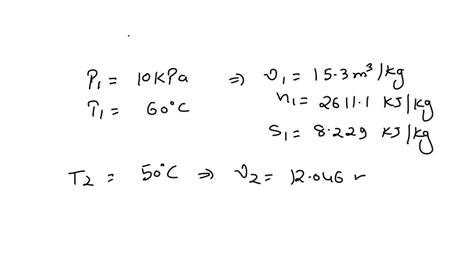 P₁ = 10KPa ⇒ υ₁ = 15.3 m³/kg
T₁ = 60°C h₁ = 2611.1 KJ/kg
S₁ = 8.229 KJ/kg
T₂ = 50°C ⇒ υ₂ = 12.046